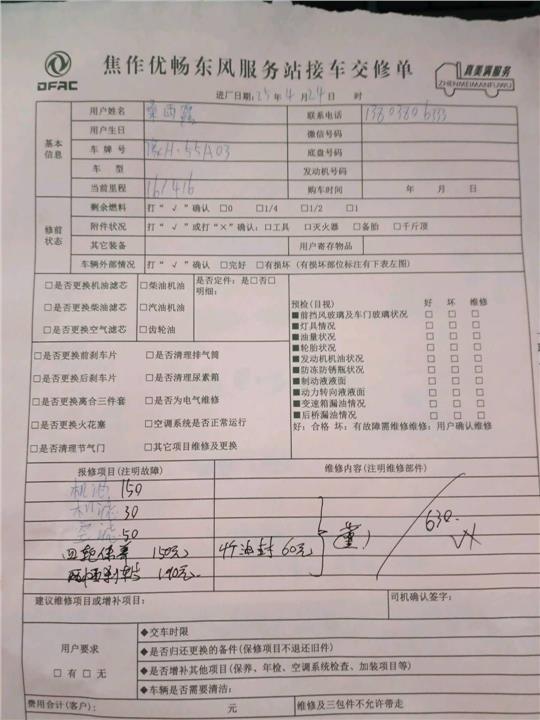 DFAC
焦作优畅东风服务站接车交修单
真美满服务
ZHENMEIMANFUWU
进厂日期: 25 年 4 月 24 日 时
基本信息
用户姓名 联系电话
用户生日 微信号码
车牌号 豫H·55A03 底盘号码
车型 发动机号码
当前里程 161416 购车时间 年 月 日
修前状态
剩余燃料 打“√”确认 □0 □1/4 □1/2 □1
附件状况 打“√”或打“×”确认: □工具 □灭火器 □备胎 □千斤顶
其它装备 用户寄存物品
车辆外部情况 打“√”确认 □完好 □有损坏 (有损坏部位标注有下表左图)
□是否更换机油滤芯 □柴油机油 是否定件: 是□否□
明细:
□是否更换柴油滤芯 □汽油机油
□是否更换空气滤芯 □齿轮油
□是否更换前刹车片 □是否清理排气筒
□是否更换后刹车片 □是否清理尿素箱
□是否更换离合三件套 □是否为电气维修
□是否更换火花塞 □空调系统是否正常运行
□是否清理节气门 □其它项目维修及更换
预检(目视) 好 坏 维修
■前挡风玻璃及车门玻璃状况 □ □ □
■灯具情况 □ □ □
■油量状况 □ □ □
■轮胎状况 □ □ □
■发动机机油状况 □ □ □
■防冻防锈瓶状况 □ □ □
■制动液液面 □ □ □
■动力转向液液面 □ □ □
■变速箱漏油情况 □ □ □
■后桥漏油情况 □ □ □
好: 合格 坏: 有故障需维修维修: 用户确认维修
报修项目(注明故障) 维修内容(注明维修部件)
机油 150
机滤 30
空滤 50
四轮保养 150元 4个油封 60元
190元
630
建议维修项目或增补项目: 司机确认签字:
用户要求
□有 □无
◆交车时限
◆是否归还更换的备件(保修项目不退还旧件)
◆是否增补其他项目(保养、年检、空调系统检查、加装项目等)
◆车辆是否需要清洁:
费用合计(客户): 元 维修及三包件不允许带走